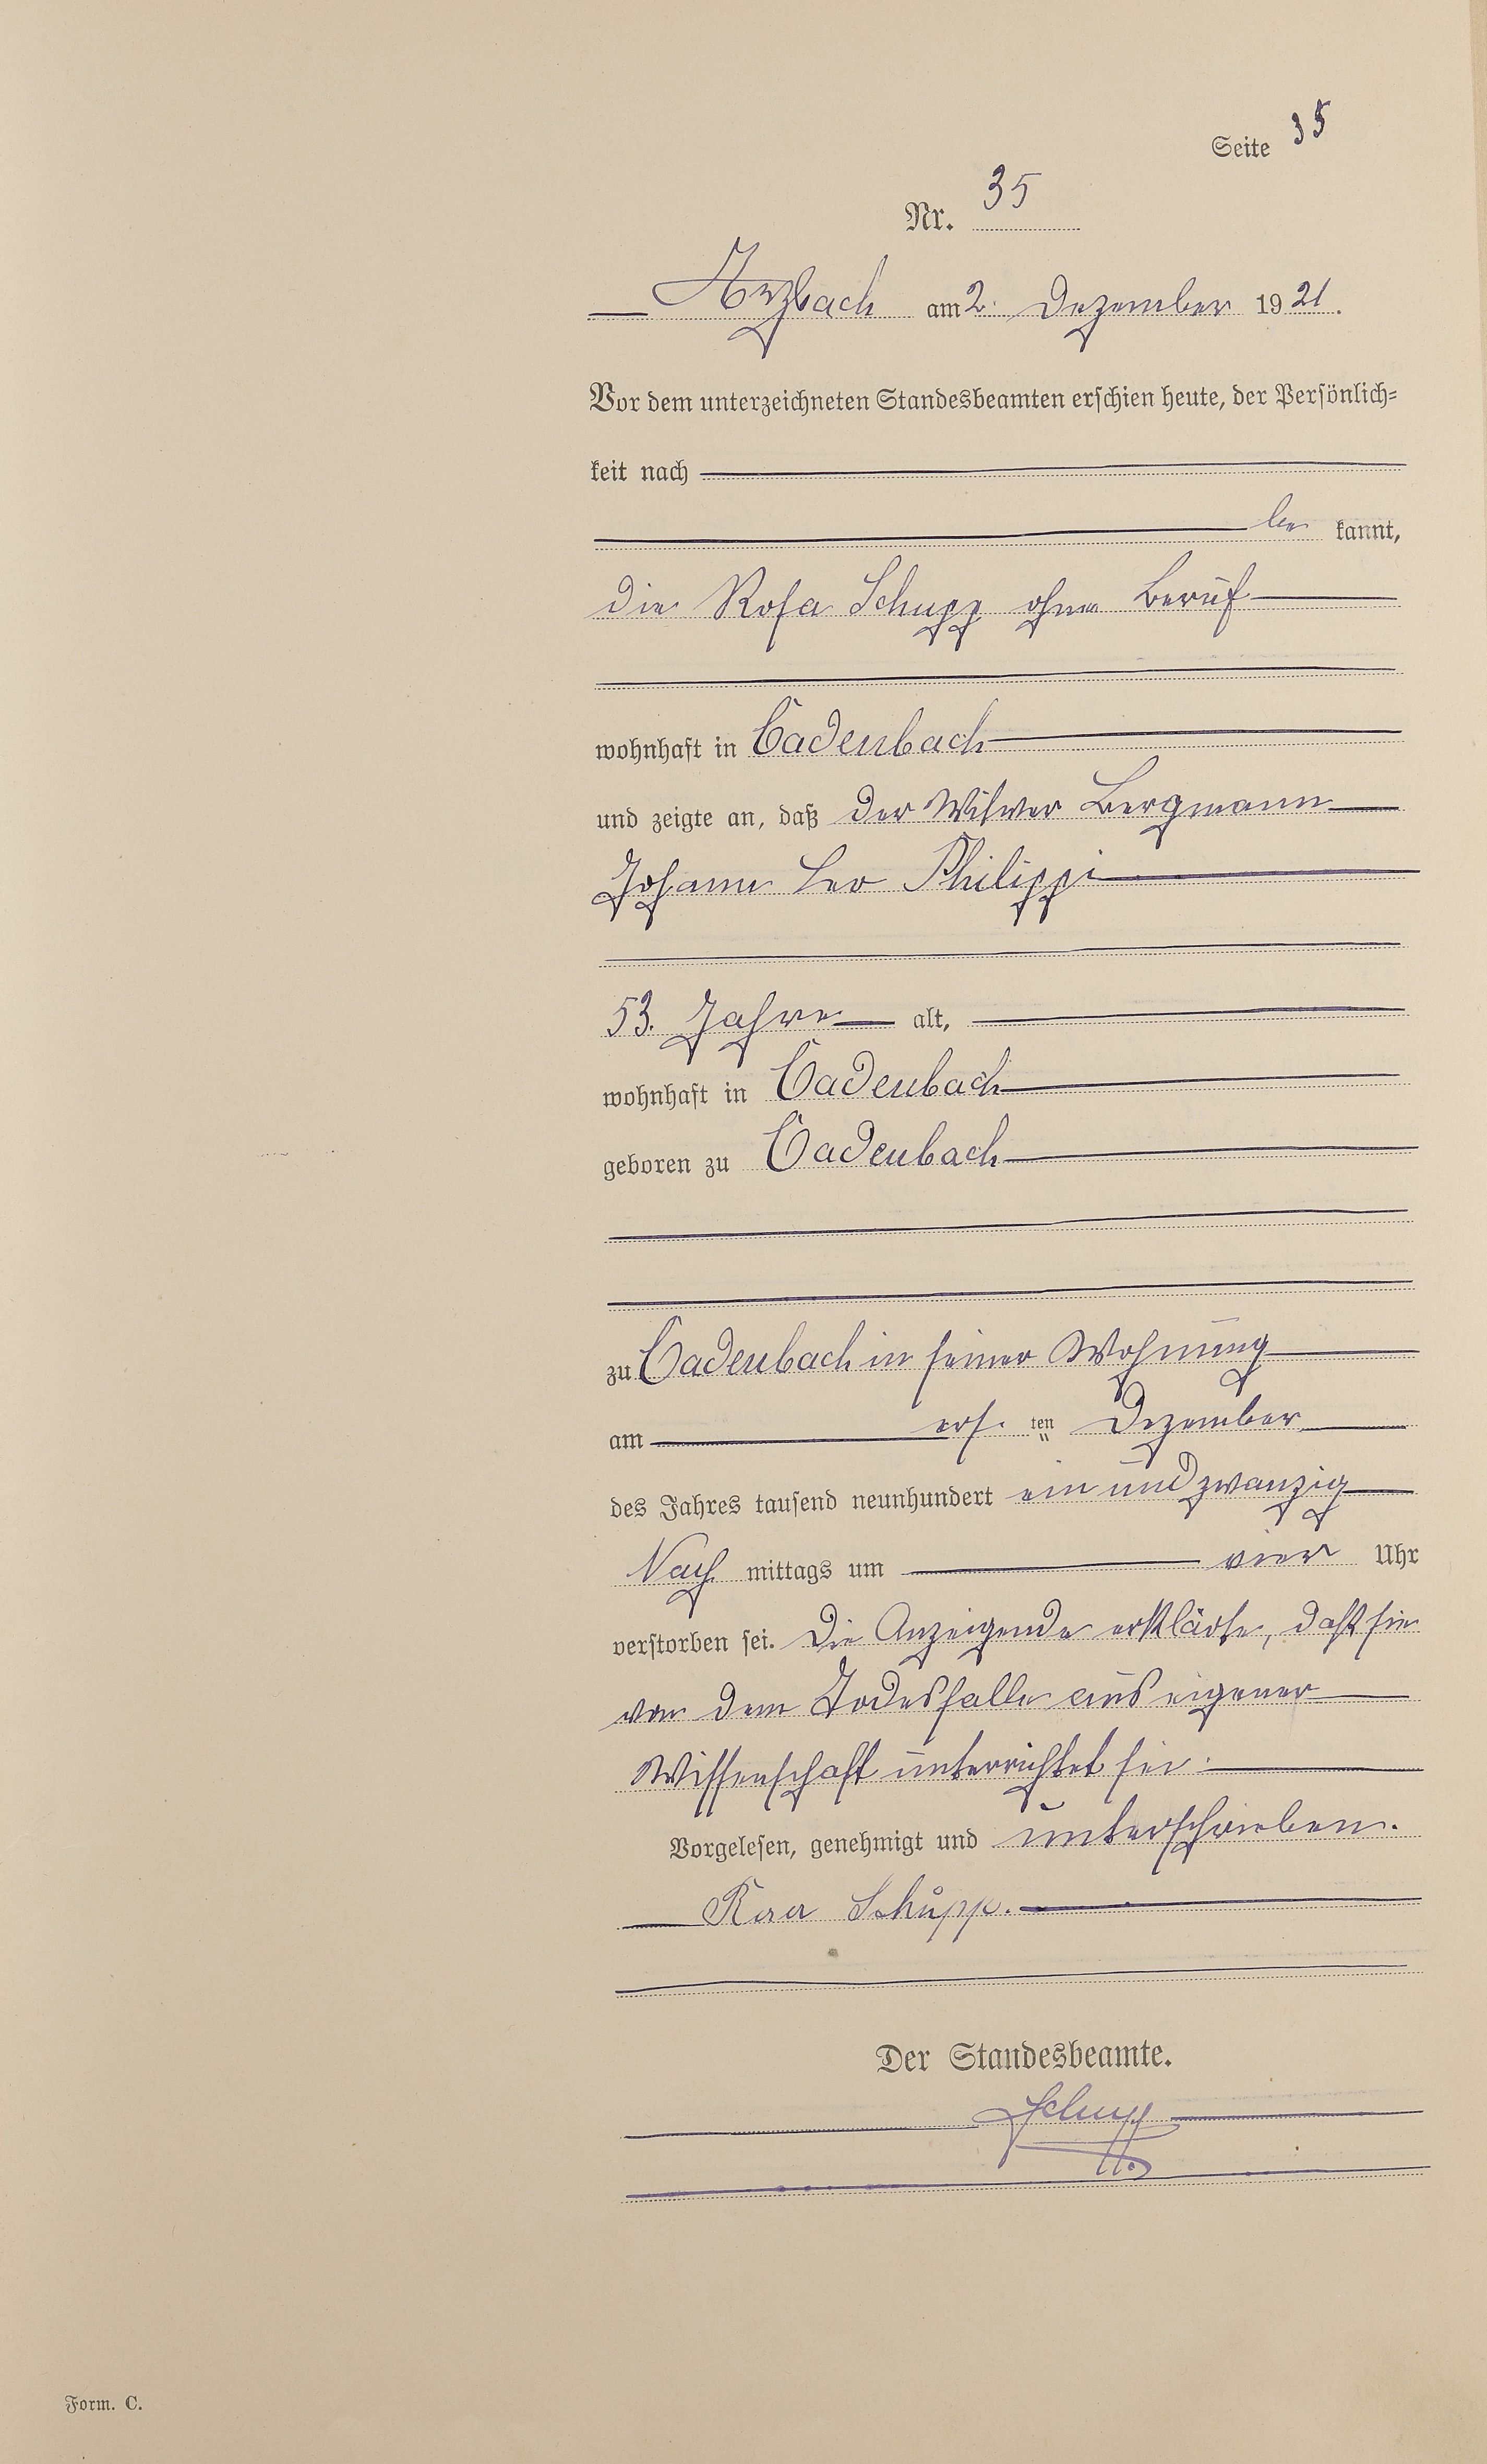 Seite 35
Nr. 35
Arzbach am 2. Dezember 1921.
Vor dem unterzeichneten Standesbeamten erschien heute, der Persönlich-
keit nach
be kannt,
die Rosa Schupp ohne Beruf
wohnhaft in Cadenbach
und zeigte an, daß der Witwer Bergmann
Johann Leo Philippi
53. Jahre alt,
wohnhaft in Cadenbach
geboren zu Cadenbach
zu Cadenbach in seiner Wohnung
am ers. ten Dezember
des Jahres tausend neunhundert ein und zwanzig
Nach mittags um vier Uhr
verstorben sei. Die Anzeigende erklärte, daß sie
von dem Todesfalle aus eigener
Wissenschaft unterrichtet sei.
Vorgelesen, genehmigt und unterschrieben.
Rosa Schupp.
Der Standesbeamte.
Schupp
Form. C.